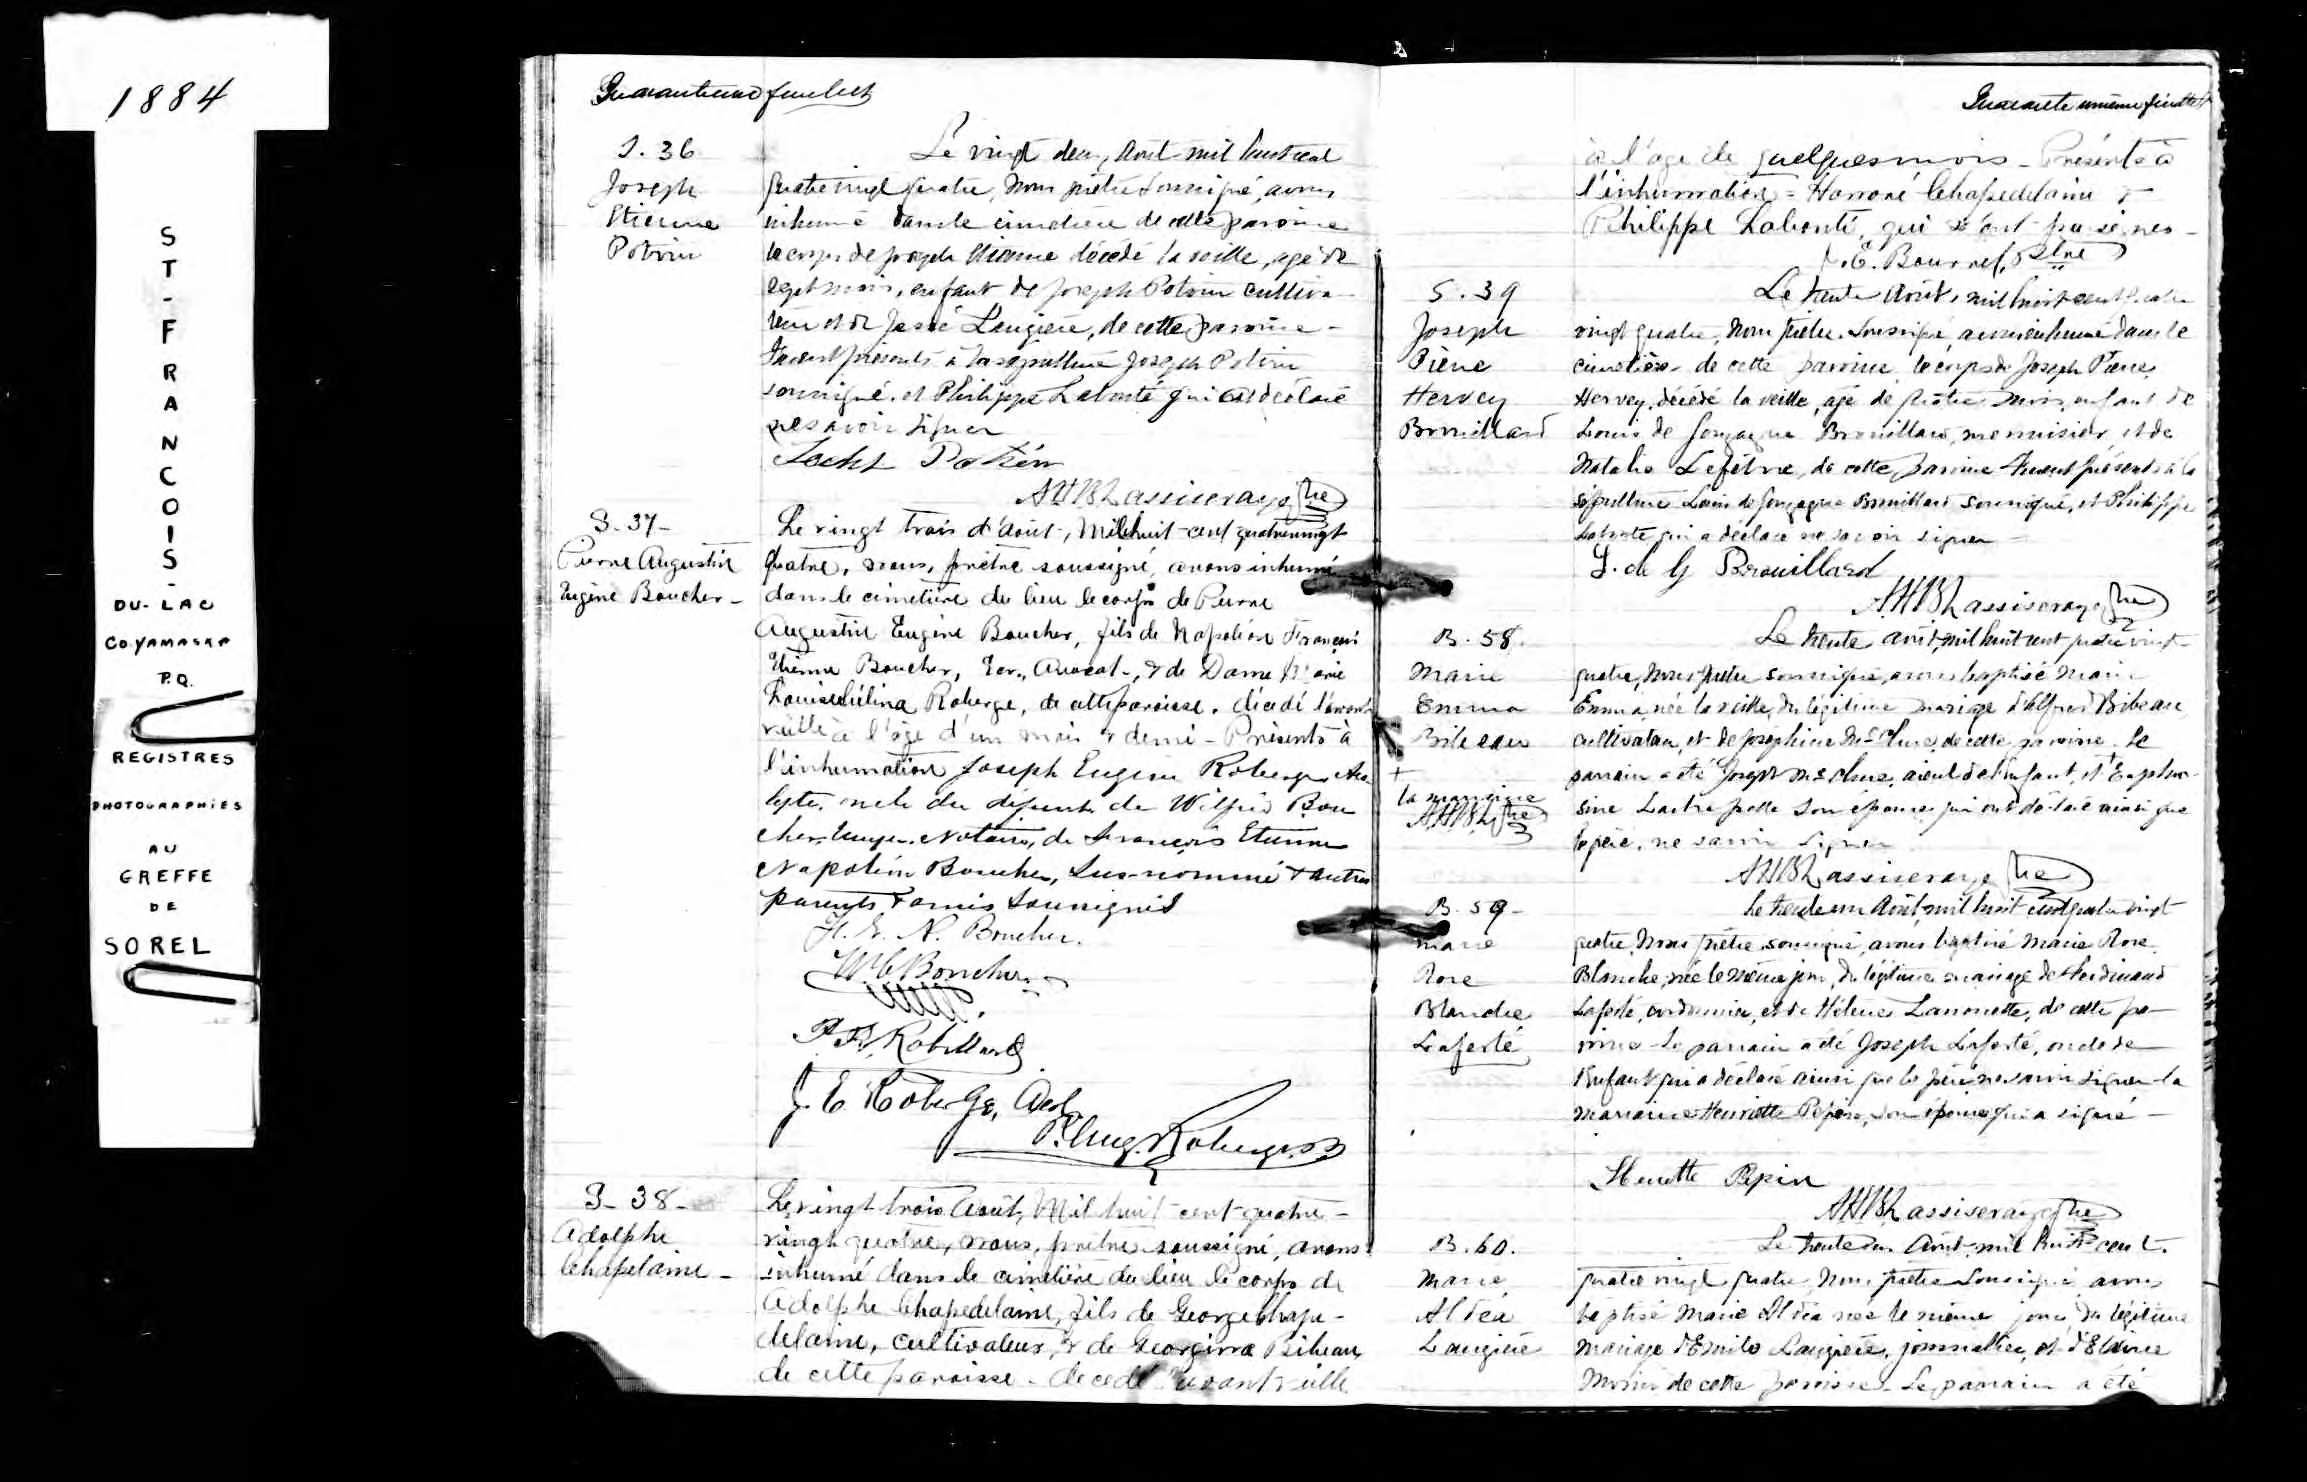 1884
ST-FRANCOIS-
DU-LAC
Co. YAMASKA
P.Q.
REGISTRES
PHOTOGRAPHIÉS
AU
GREFFE
DE
SOREL
Quarantieme feuillet
S. 36
Joseph
Etienne
Potvin
Le vingt deux Août mil huit cent
quatre vingt quatre, Nous prêtre soussigné, avons
inhumé dans le cimetière de cette paroisse
le corps de Joseph Etienne décédé la veille, agé de
sept mois, enfant de Joseph Potvin cultiva-
teur et de Laugière, de cette paroisse -
Furent présents à la sépulture Joseph Potvin
soussigné, et Philippe Labonté qui a déclaré
ne savoir signer
Potvin
S-37-
Pierre Augustin
Eugène Boucher -
Le vingt trois d'Août, Mil huit-cent quatrevingt
quatre, nous, prêtre soussigné, avons inhumé
dans le cimetière du lieu le corps de Pierre
Augustin Eugène Boucher, fils de Napoléon François
Etienne Boucher, Ecr., Avocat-, & de Dame Marie
Louise Roberge, de cette paroisse, décédé l'avant
veille à l'âge d'un mois & demi - Présents à
l'inhumation Joseph Eugène Roberge
oncle du défunt de Wilfrid Bou
cher, Notaire, de François Etienne
Napoléon Boucher, Sus-nommé & autres
parents & amis soussignés
F. E. N. Boucher.
W Boucher
J. E. Roberge,
P. Aug. Roberge
S-38-
Adolphe
Chapelaine -
Le vingt trois Août, Mil huit-cent-quatre-
vingt quatre, nous, prêtre soussigné, avons
inhumé dans le cimetière du lieu le corps de
Adolphe Chapedelaine, fils de George Chape-
delaine, cultivateur, & de Georgina Bibeau
de cette paroisse - décédé l'avant veille
Quarante unième feuillet
à l'age de quelques mois - Présents à
l'inhumation = Honoré Chapedelaine &
Philippe Labonté, qui n'ont pu signer -
Ptre
S. 39
Joseph
Pierre
Hervey
Brouillard
Le trente Août, mil huit cent quatre
vingt quatre, Nous prêtre soussigné avons inhumé dans le
cimetière de cette paroisse le corps de Joseph Pierre
Hervey, décédé la veille, agé de quatre mois, enfant de
Louis de Gonzague Brouillard, menuisier, et de
Natalie Lefebvre, de cette paroisse Furent présents à la
sépulture Louis de Gonzague Brouillard soussigné, et Philippe
Labonté qui a déclaré ne savoir signer -
L. de G Brouillard
B. 58.
Marie
Emma
Bibeau
+
la marraine
Le trente août, mil huit cent quatre vingt
quatre, Nous prêtre soussigné, avons baptisé Marie
Emma, née la veille, du légitime mariage d'Alfred Bibeau
cultivateur, et de Josephine McClure, de cette paroisse. Le
parrain a été Joseph McClure, aieul de l'enfant, et + Euphro-
sine son épouse qui ont déclaré ainsi que
le père, ne savoir signer
B. 59-
Marie
Rose
Blanche
Laferté
Le trente un Août mil huit cent quatre vingt
quatre, Nous prêtre, soussigné, avons baptisé Marie Rose
Blanche, née le même jour, du légitime mariage de Ferdinand
Laferté, cordonnier, et de Hélène Lanouette, de cette pa-
roisse - Le parrain a été Joseph Laferté, oncle de
l'enfant qui a déclaré ainsi que le père ne savoir signer - la
marraine Henriette Pepin, son épouse qui a signé -
Henriette Pepin
B. 60.
Marie
Aldéa
Laugière
Le trente un Août mil huit cent
quatre vingt quatre, Nous prêtre soussigné avons
baptisé Marie Aldéa née le même jour, du légitime
mariage d'Emile Laugière, journalier, et
de cette paroisse. Le parrain a été